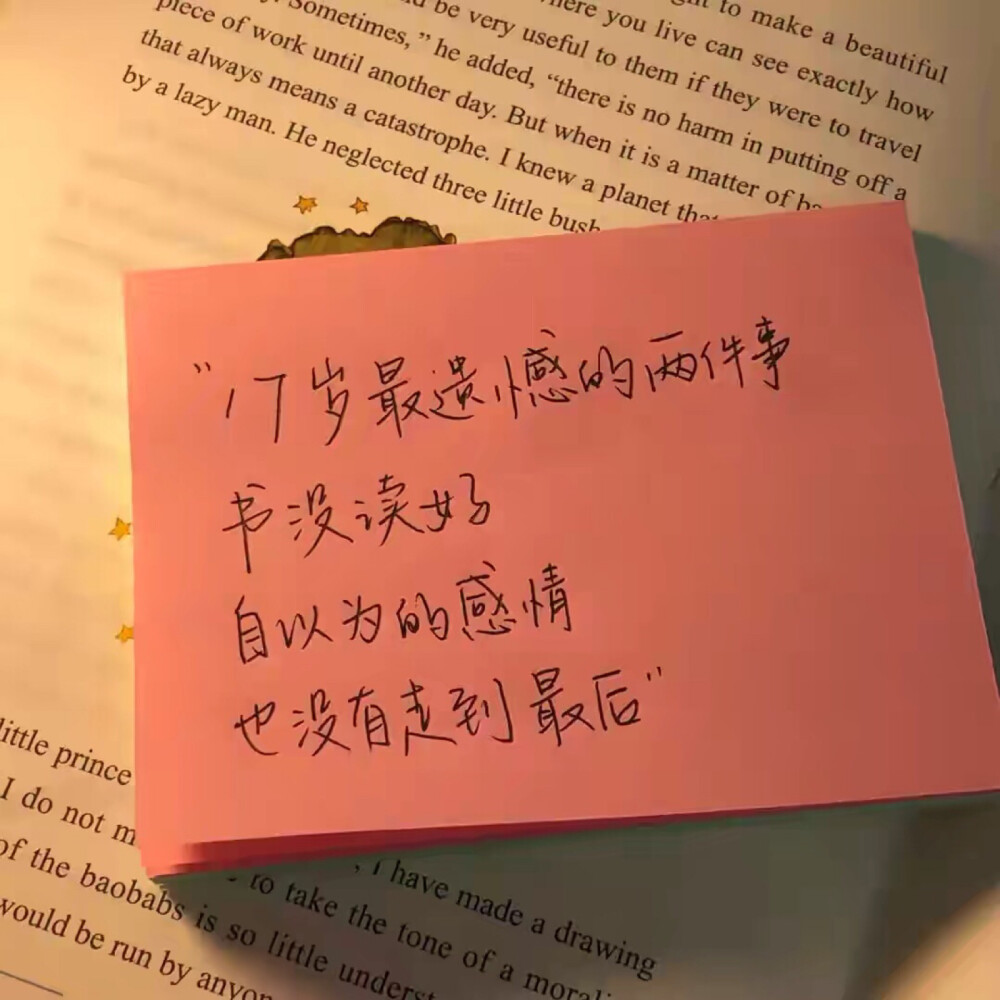 to make a beautiful
here you live can see exactly how
be very useful to them if they were to travel
Sometimes," he added, "there is no harm in putting off a
piece of work until another day. But when it is a matter of
that always means a catastrophe. I knew a planet
by a lazy man. He neglected three little
"17岁最遗憾的两件事
书没读好
自以为的感情
也没有走到最后"
little prince
I do not
, I have made a drawing
of the baobabs
to take the tone of a
is so little
would be run by